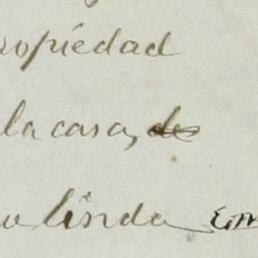 ropiedad
la casa, de
linda